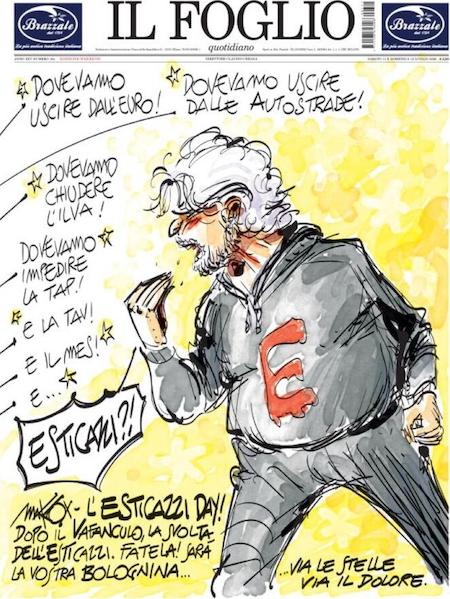 Brazzale
dal 1784
La più antica tradizione italiana
IL FOGLIO
quotidiano
Brazzale
dal 1784
La più antica tradizione italiana
DIRETTORE CLAUDIO CERASA
DOVEVAMO
USCIRE DALL'EURO!
DOVEVAMO USCIRE
DALLE AUTOSTRADE!
DOVEVAMO
CHIUDERE
L'ILVA!
DOVEVAMO
IMPEDIRE
LA TAP!
E LA TAV!
E IL MES!
E...
ESTICAZZI?!
MAKKOX - L'ESTICAZZI DAY!
DOPO IL VAFANCULO, LA SVOLTA
DELL'ESTICAZZI. FATELA! SARÀ
LA VOSTRA BOLOGNINA...
...VIA LE STELLE
VIA IL DOLORE.
E